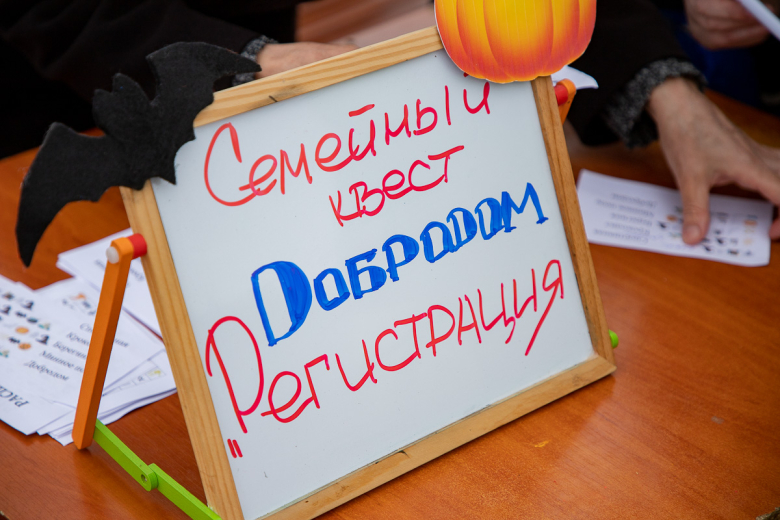 Семейный
квест
Добродом
"Регистрация